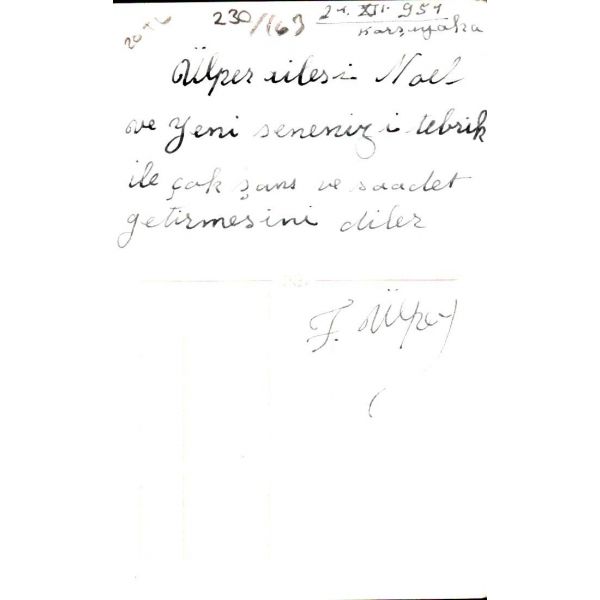 20 TL 230/163 21. XII. 951
Karşıyaka
Ülper ailesi Noel
ve Yeni senenizi tebrik
ile çok şans ve saadet
getirmesini diler
F. Ülper